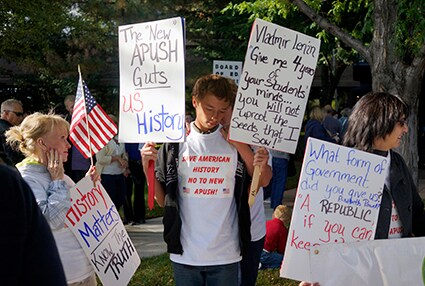 The "New"
APUSH
Guts
US
History
Vladmir Lenin
Give me 4 years
of your
Students
minds...
you will
not
uproot the
Seeds that I
So
SAVE AMERICAN
HISTORY
NO TO NEW
APUSH!
History
Matters
Know the
TRUTH
What form of
government
did you give us
A
REPUBLIC
if you can
Keep
BOARD